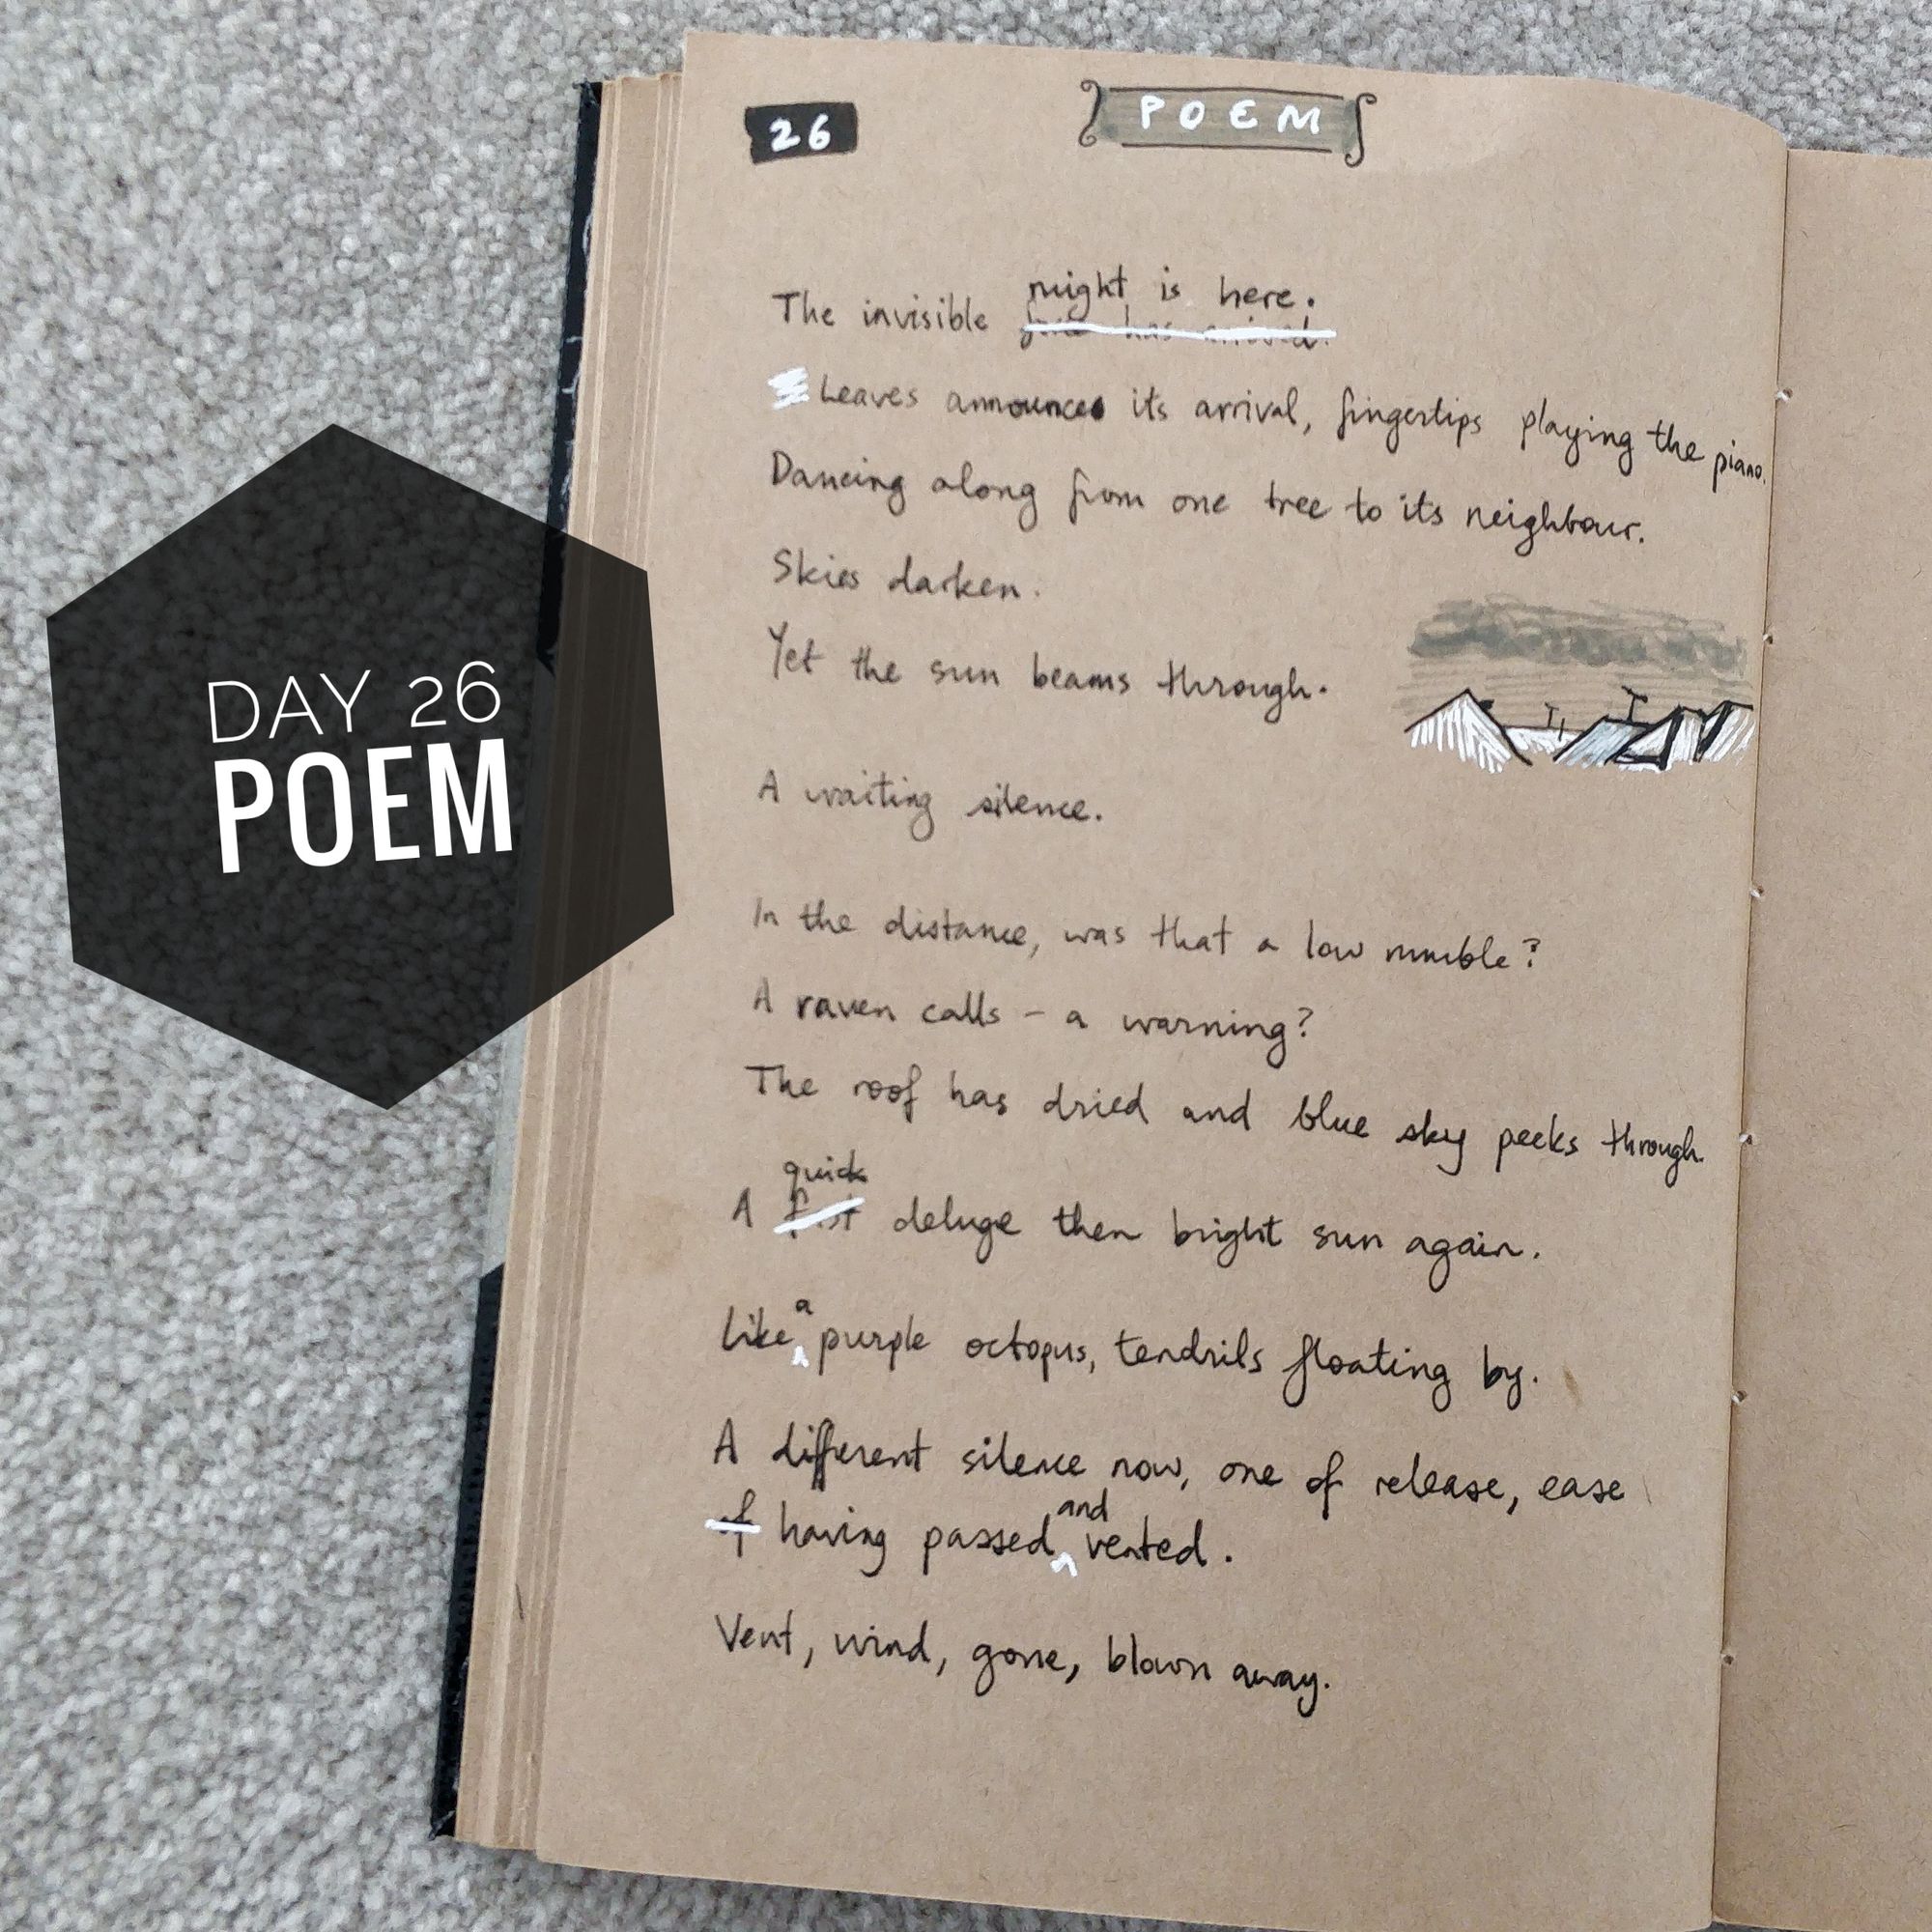 DAY 26
POEM
26
POEM
might is here.
The invisible has arrived.
Leaves announce its arrival, fingertips playing the piano.
Dancing along from one tree to its neighbour.
Skies darken.
Yet the sun beams through.
A waiting silence.
In the distance, was that a low rumble?
A raven calls - a warning?
The roof has dried and blue sky peeks through.
quick
A fast deluge then bright sun again.
a
Like purple octopus, tendrils floating by.
A different silence now, one of release, ease
and
of having passed vented.
Vent, wind, gone, blown away.